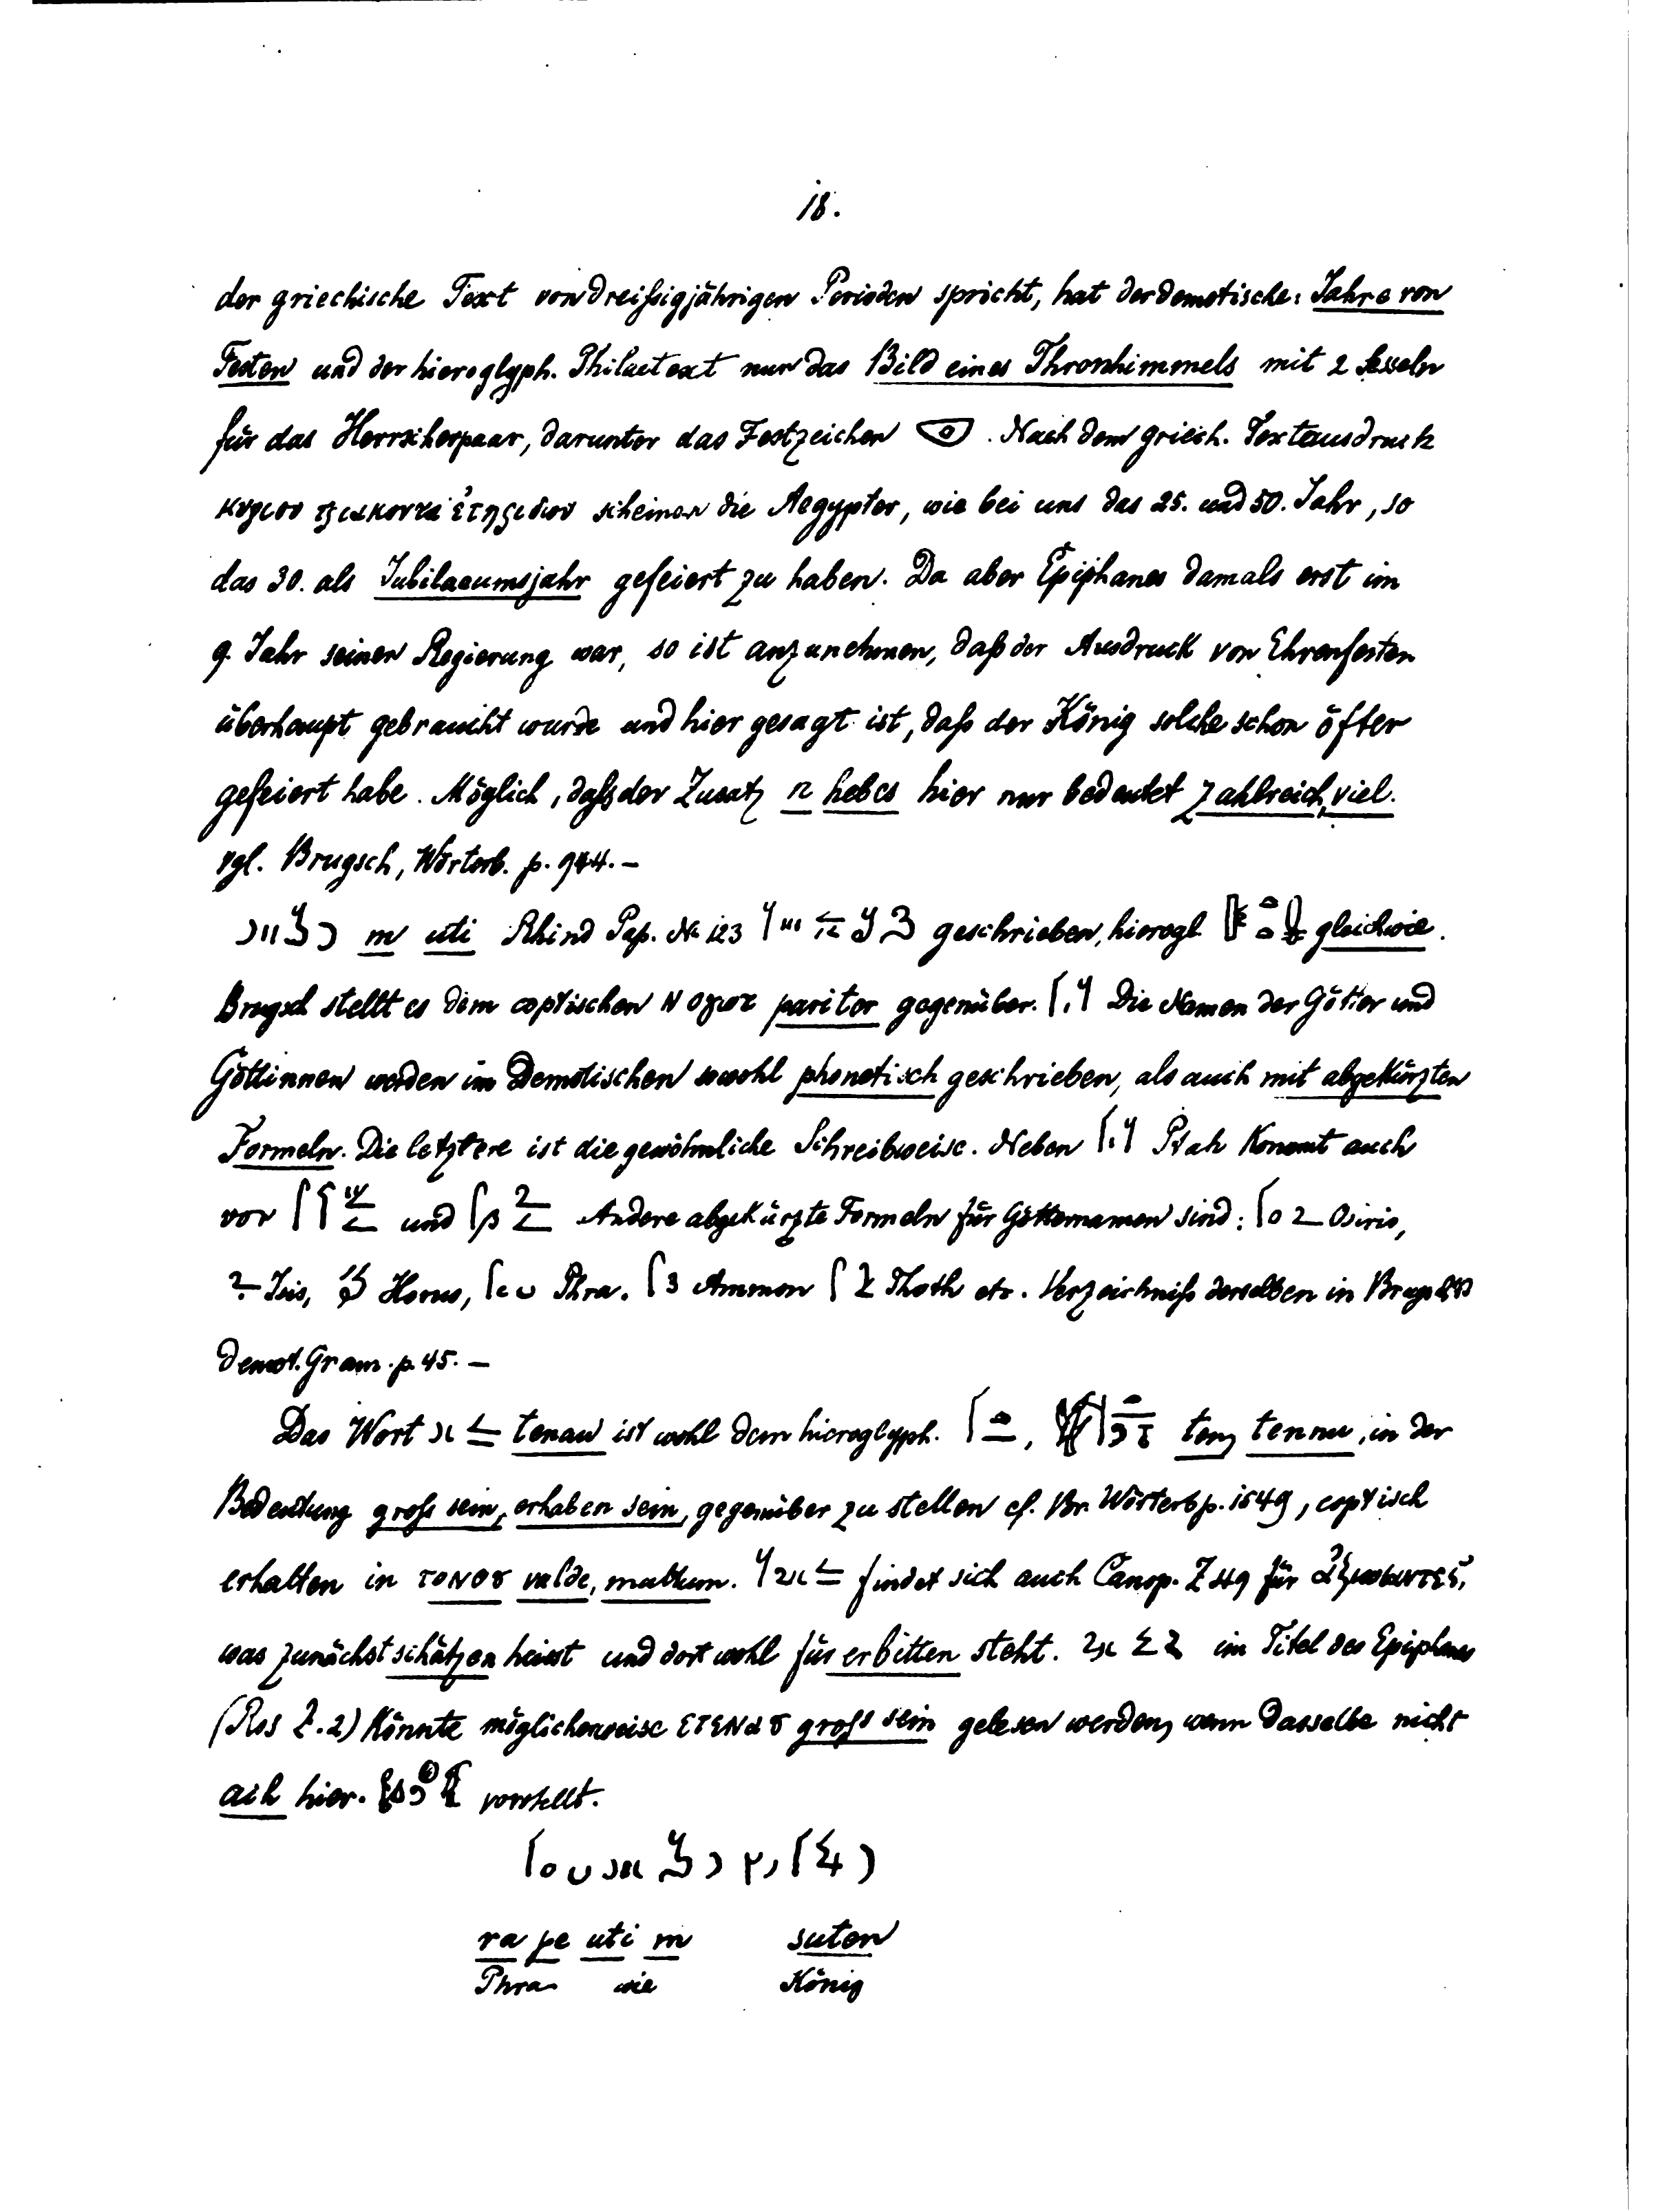 18.
der griechische Text von dreißigjährigen Perioden spricht, hat der demotische: Jahre von
Festen und der hieroglyph. Philaetext nur das Bild eines Thronhimmels mit 2 Sesseln
für das Herrscherpaar, darunter das Festzeichen . Nach dem griech. Textausdruck
κυριου τριακονταετηριδων scheinen die Aegypter, wie bei uns das 25. und 50. Jahr, so
das 30. als Jubilaeumsjahr gefeiert zu haben. Da aber Epiphanes damals erst im
9. Jahr seiner Regierung war, so ist anzunehmen, daß der Ausdruck von Ehrenfesten
überhaupt gebraucht wurde und hier gesagt ist, daß der König solche schon öfter
gefeiert habe. Möglich, daß der Zusatz n hebes hier nur bedeutet zahlreich, viel.
vgl. Brugsch, Wörterb. p. 944. –
m uti Rhind Pap. № 123 geschrieben, hierogl. gleichwie.
Brugsch stellt es dem coptischen pariter gegenüber. Die Namen der Götter und
Göttinnen werden im Demotischen sowohl phonetisch geschrieben, als auch mit abgekürzten
Formeln. Die letztere ist die gewöhnliche Schreibweise. Neben Ptah Kommt auch
vor und Andere abgekürzte Formeln für Götternamen sind: Osiris,
Isis, Horus, Phra. Ammon Thoth etc. Verzeichniß derselben in Brugsch
demot. Gram. p. 45. –
Das Wort tenau ist wohl dem hieroglyph. ten, tennu, in der
Bedeutung groß sein, erhaben sein, gegenüber zu stellen cf. Br. Wörterb p. 1549, coptisch
erhalten in ⲧⲟⲛⲟⲩ valde, multum. findet sich auch Canop. Z 49 für
was zunächst schätzen heisst und dort wohl für erbitten steht. im Titel des Epiphanes
(Ros Z. 2) Könnte möglicherweise ⲉⲧⲉⲛⲁⲩ groß sein gelesen werden, wenn dasselbe nicht
aih hier. vorstellt.
ra pe uti m suten
Phra wie König